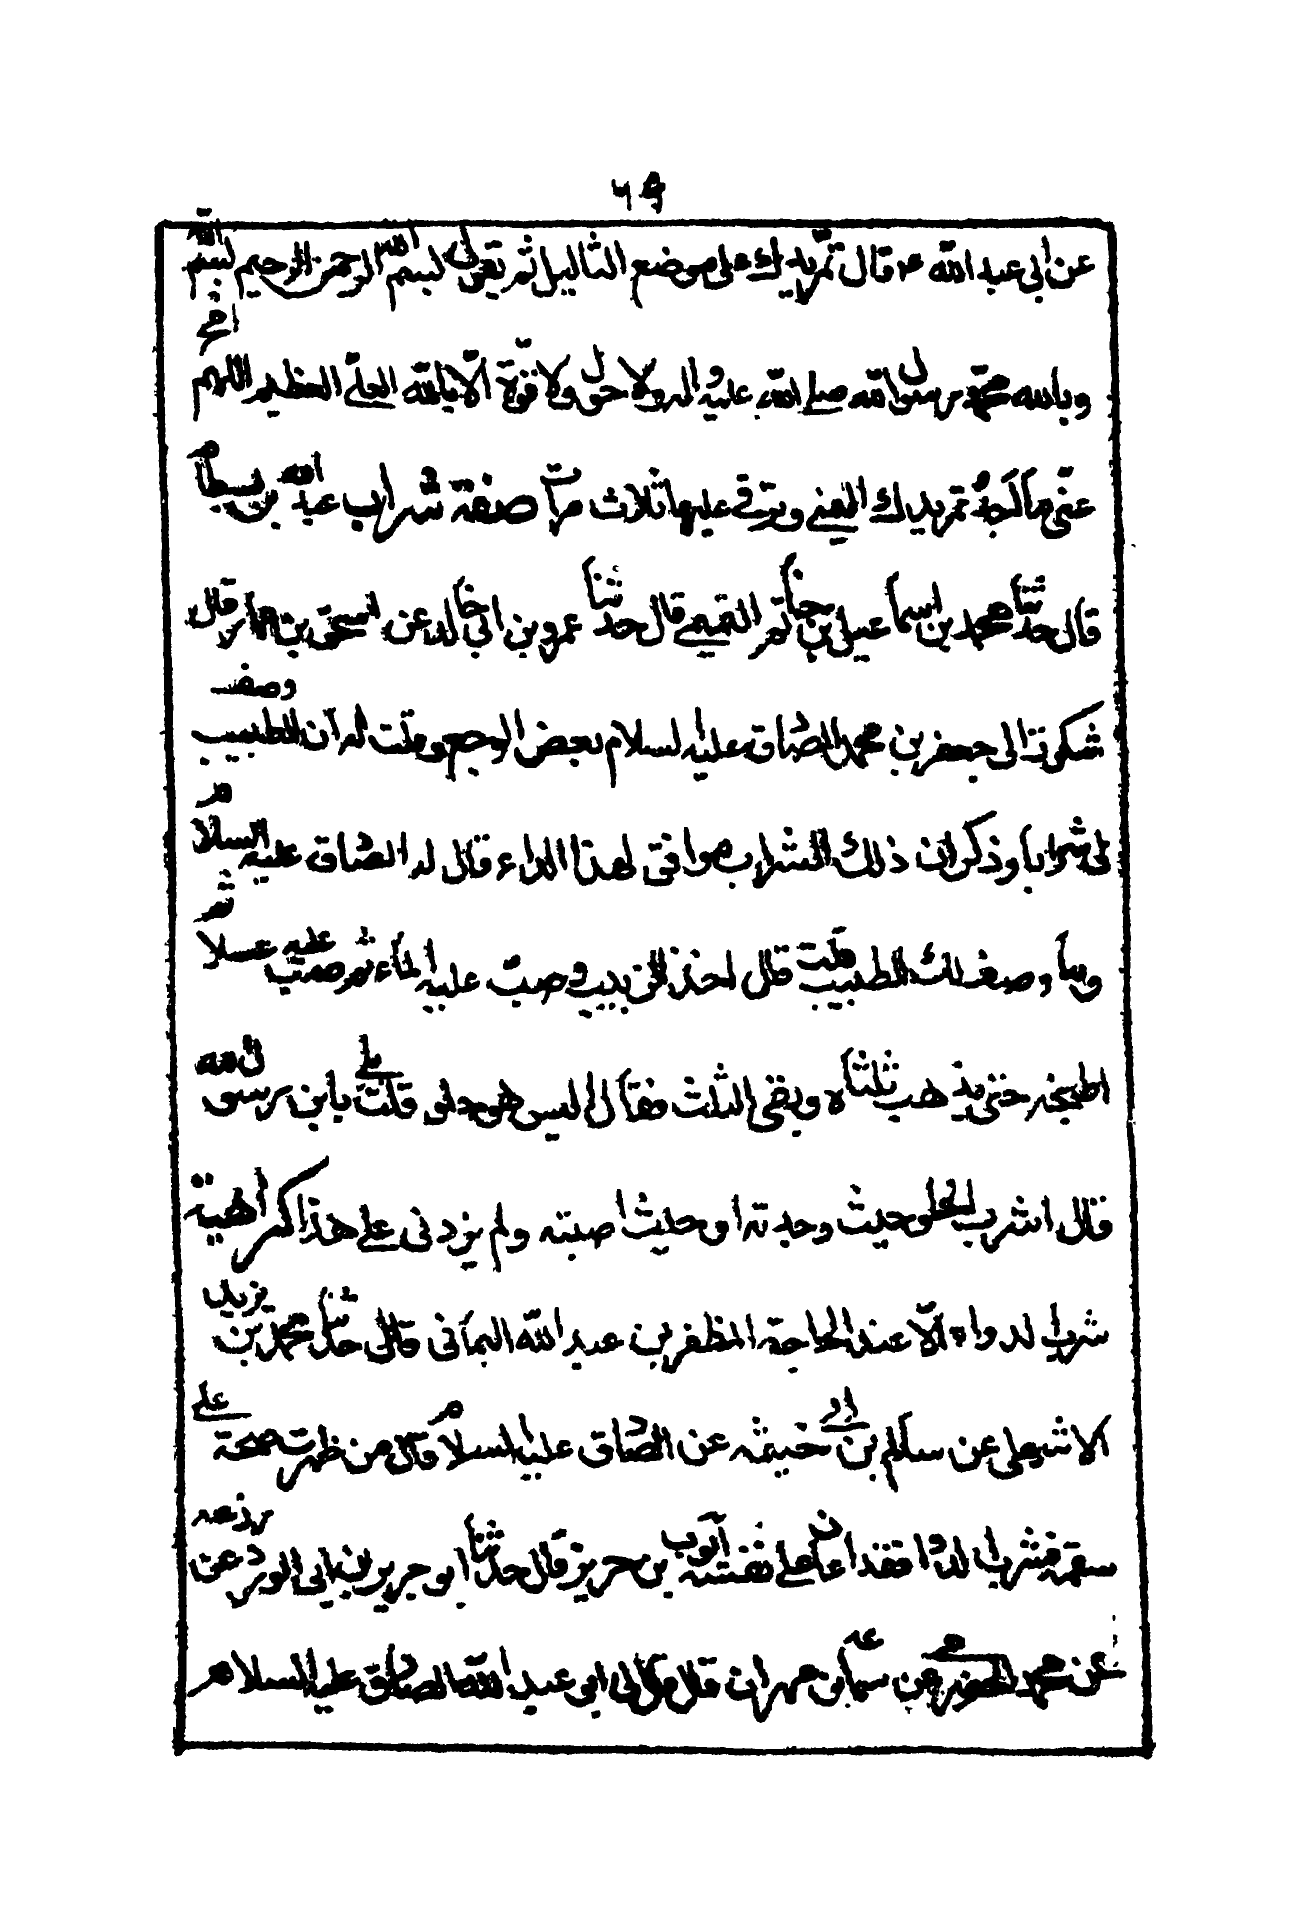 ٦٩
عن ابي عبد الله ع قال تمر يدك على موضع الثاليل ثم تقول بسم الله الرحمن الرحيم بسم الله
وبالله محمد رسول الله صلى الله عليه واله ولا حول ولا قوة الا بالله العلي العظيم اللهم امح
عني ما اجد تمر يدك اليمنى وترقى عليها ثلاث مرات صفة شراب عبد الله بن بسطام
قال حدثنا محمد بن اسماعيل بن حاتم التميمي قال حدثنا عمرو بن ابي خالد عن اسحق بن عمار قال
شكوت الى جعفر بن محمد الصادق عليه السلام بعض الوجع وقلت له ان الطبيب وصف
لي شرابا وذكر ان ذلك الشراب موافق لهذا الداء قال له الصادق عليه السلام
وما وصف لك الطبيب قلت قال خذ الزبيب وصب عليه الماء ثم صب عليه عسلا ثم
اطبخه حتى يذهب ثلثاه ويبقى الثلث فقال اليس هو حلو قلت بلى يابن رسول الله
قال اشرب الحلو حيث وجدته او حيث اصبته ولم يزدني على هذا كراهية
شراب لدواء الا عند الحاجة المظفر بن عبد الله اليماني قال حدثنا محمد بن يزيد
الاشهلي عن سالم بن ابي خيثمه عن الصادق عليه السلام قال من ظهرت صحته على
سقمه فشرب الدواء فقد اعان على نفسه ايوب بن حريز قال حدثنا ابو جرير بن ابي الورد عن زرعه
عن محمد الحضرمي عن سماعه بن مهران قال قال لي ابي عبد الله الصادق عليه السلام